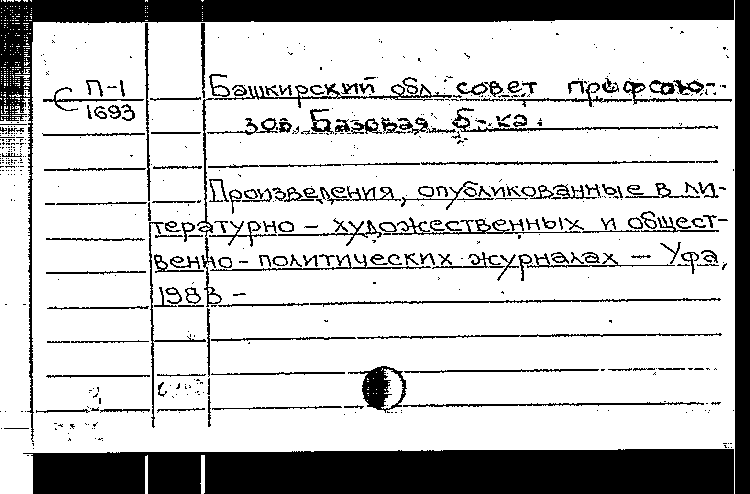 С П-1
1693
Башкирский обл. совет профсою-
зов. Базовая б-ка.
Произведения, опубликованные в ли-
тературно - художественных и общест-
венно - политических журналах - Уфа,
1983 -